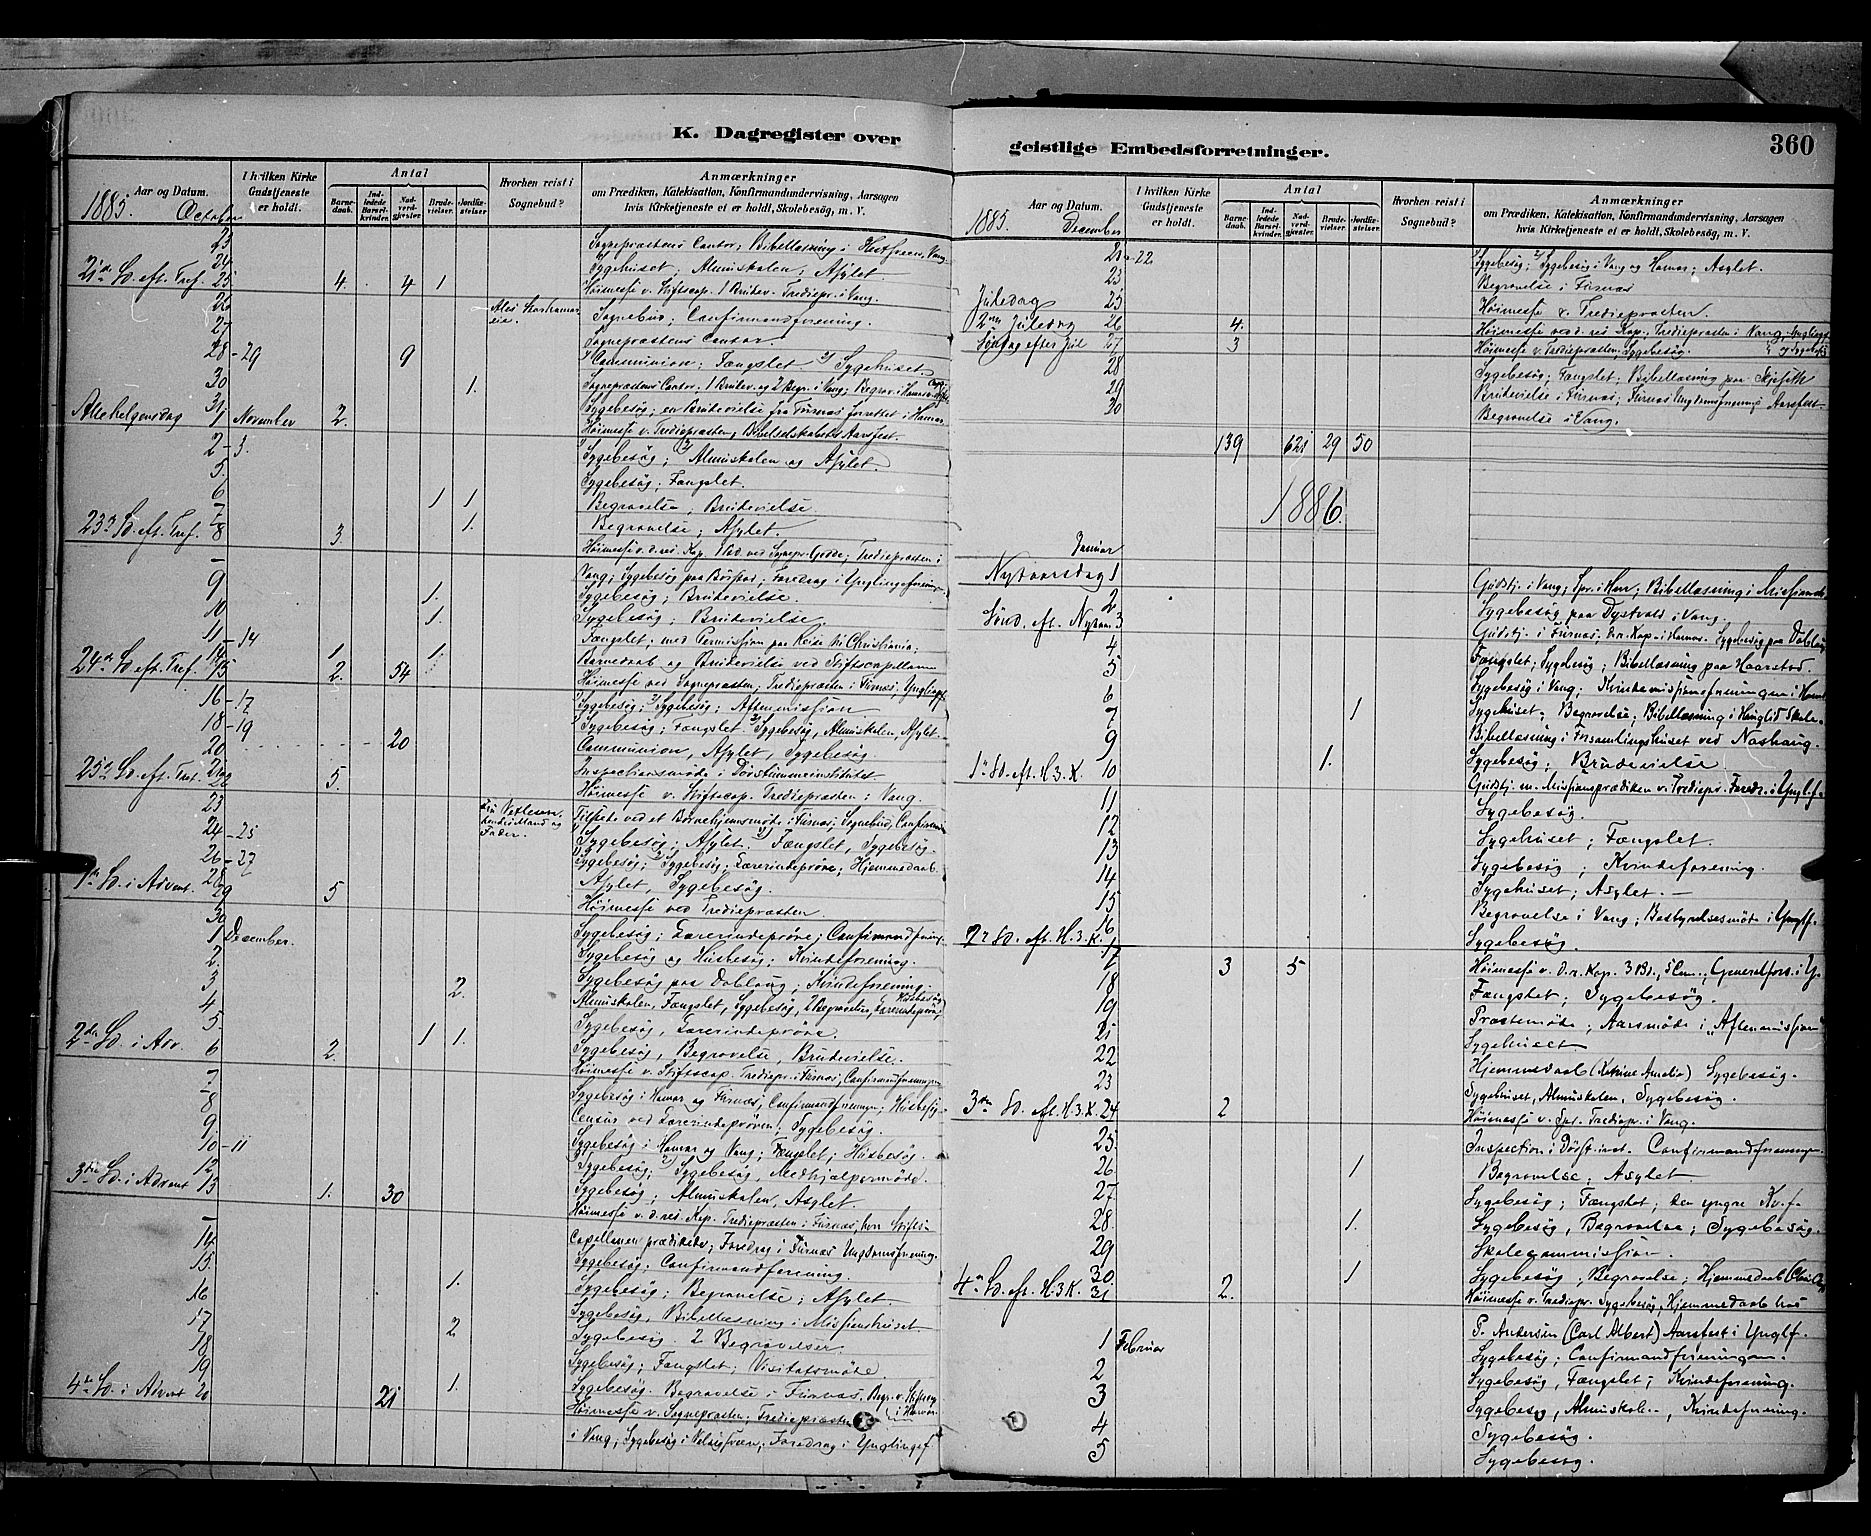 K. Dagregister over
Aar og Datum.
I hvilken Kirke Gudstjeneste er holdt.
Antal
Barnedaab.
Indledede Barselkvinder.
Nadverdgjester.
Brudevielser.
Jordfæstelser.
Hvorhen reist i Sognebud?
Anmærkninger
om Prædiken, Katekisation, Konfirmandundervisning, Aarsagen
hvis Kirketjeneste ei er holdt, Skolebesøg, m. V.
1885. October
23 Sognepræstens Contor; Bibellæsning i
24 Sygehuset; Almuskolen, Asylet
21de S. eft. Tref. 25 4 4 1 Høimesse v. Stiftscap. 1 Brudev. Trediepr. i Vang.
26 Sognebud; Confirmandforening.
27 Sognepræstens Contor.
28-29 9 1) Communion; Fængslet 2) Sygehuset
30 1. Sognepræstens Contor. 1 Brudev. og 2 Begr. i Vang;
31 Sygebesøg; en Brudevielse fra Furnæs forrettet i Hamar.
Allehelgensdag 1 November 2. Høimesse v. Trediepræsten, Bibelselskabets Aarsfest.
2-3. Sygebesøg; 2) Almuskolen og Asylet.
5. Sygebesøg; Fængslet.
6 1 1 Begravelse, Brudevielse
7 1. Begravelse; Asylet.
23de S. eft. Tref. 8 3 Høimesse v. d. res. Kap. Trediepræsten i
Vang; Sygebesøg paa Børstad; Foredrag i Ynglingeforening
9 1. Sygebesøg; Brudevielse.
10 1. Sygebesøg; Brudevielse.
11-14 Fængslet; med Permission paa Reise til Christiania;
14 1. 1. Barnedaab og Brudevielse ved Stiftscapellanen
24de S. eft. Tref. 15 2. 54 Høimesse ved Sognepræsten; Trediepræsten i Furnæs, Ynglingef.
16-17 1) Sygebesøg; 2) Sygebesøg; Aftenmission
18-19 1) Sygebesøg; Fængslet. 2) Sygebesøg, Almuskolen, Asylet.
20 20 Communion, Asylet, Sygebesøg.
21 Inspectionsmøde i Døvstummeinstitutet
25de S. eft. Tref. 22 5. Høimesse v. Stiftscap. Trediepræsten i Vang.
23 Tilstede ved et Børnehjemsmøde i Furnæs, Sognebud,
24-25 Sygebesøg; Asylet. Fængslet, Sygebesøg.
26-27 1) Sygebesøg; 2) Sygebesøg; Lærerindeprøve; Hjemmedaab.
28 Asylet, Sygebesøg.
1ste S. i Advent. 29 5 Høimesse ved Trediepræsten
30 Sygebesøg; Lærerindeprøve; Confirmandforening.
1 December. Sygebesøg og Husbesøg; Kvindeforening.
2. Sygebesøg paa Doblaug; Kvindeforening.
3 2. Almuskolen, Fængslet, Sygebesøg, 2 Begravelser, Lærerindeprøve,
4 Sygebesøg, Lærerindeprøve.
5 1 1. Sygebesøg, Begravelse, Brudevielse.
2den S. i Adv. 6 2. Høimesse v. Stiftscap. Trediepr. i Furnæs; Confirmandforeningen
7 Sygebesøg i Hamar og Furnæs, Confirmandforeningen; Husbesøg.
8 Censur ved Lærerindeprøven; Sygebesøg.
9 Sygebesøg i Hamar og Vang; Fængslet; Husbesøg.
10-11 Sygebesøg; 2) Sygebesøg, Medhjælpermøde.
12 Sygebesøg; Almuskolen, Asylet.
3die S. i Advent 13 1. 30 Høimesse v. d. res. Kap. Trediepræsten i Furnæs, hvor Stifts-
Capellanen prædikede; Foredrag i Furnæs Ungdomsforening.
14 Sygebesøg; Confirmandforening.
15. 1. Sygebesøg; Begravelse; Asylet.
16 Sygebesøg, Bibellæsning i Missionshuset.
17 2 Sygebesøg. 2 Begravelser.
18 Sygebesøg; Fængslet; Visitatsmøde.
19 1. Sygebesøg. Begravelse i Furnæs.
4de S. i Advent 20 21 Høimesse v. Sognepræsten; Trediepræsten
i Vang; Sygebesøg i Foredrag i Ynglingef
geistlige Embedsforretninger.
360
Aar og Datum.
I hvilken Kirke Gudstjeneste er holdt.
Antal
Barnedaab.
Indledede Barselkvinder.
Nadverdgjester.
Brudevielser.
Jordfæstelser.
Hvorhen reist i Sognebud?
Anmærkninger
om Prædiken, Katekisation, Konfirmandundervisning, Aarsagen
hvis Kirketjeneste ei er holdt, Skolebesøg, m. V.
1885. December
21-22 Sygebesøg; 2) Sygebesøg i Vang og Hamar; Asylet.
23 Begravelse i Furnæs
Juledag 25 Høimesse v. Trediepræsten.
2den Juledag 26 4. Høimesse ved d. res. Kap. Trediepræsten i Vang,
Søndag efter Jul 27 3 Høimesse v. Trediepræsten. Sygebesøg.
28 Sygebesøg; Fængslet; Bibellæsning paa
29 Brudevielse i Furnæs; Furnæs Ungdomsforenings Aarsfest.
30 Begravelse i Vang.
139 621 29 50
1886.
Januar
Nytaarsdag 1 Gudstj. i Vang; Bibellæsning i
2 Sygebesøg paa Dystvold i Vang.
Sönd. eft. Nytaar 3 Gudstj. i Furnæs. Sygebesøg paa Doblaug
4 Fængslet; Sygebesøg; Bibellæsning paa Haarstad
5 Sygebesøg i Vang; Kvindemissionsforeningen i
6 Sygehuset. Begravelse; Bibellæsning i Skole.
7 1 Bibellæsning i Forsamlingshuset ved Nashaug.
9 1. Sygebesøg; Brudevielse.
1ste S. eft. H.3.K. 10 Gudstj. m. Missionsprædiken v. Trediepr. Foredr. i Ynglf.
11 Sygebesøg.
12 Sygehuset; Fængslet.
13 Sygebesøg; Kvindeforening.
14 Sygehuset; Asylet. —
15 Begravelse i Vang; Bestyrelsesmöte i Ynglf.
16 Sygebesøg.
2den S. eft. H.3.K. 17 3 5 Høimesse v. d. r. Kap. Generalfors. i
18 Fængslet; Sygebesøg.
19 Præstemöde; Aarsmöde i „Aftenmission"
21 Sygehuset
22 Hjemmedaab Sygebesøg.
23 Sygehuset, Almuskolen, Sygebesøg.
3die S. eft. H.3.K. 24 2 Høimesse v. Spr. Trediepr. i Vang.
25 Inspection i Døvst. inst. Confirmandforeningen
26 1 Begravelse; Asylet
27 Sygebesøg; Fængslet; den yngre Kv.f.
28 1. Sygebesøg, Begravelse; Sygebesøg.
29 Skolecommission.
30 1 Sygebesøg; Begravelse; Hjemmedaab
4de S. eft. H.3K. 31 2. Høimesse v. Trediepr. Sygebesøg, Hjemmedaab hos
P. Andersen (Carl Albert) Aarsfest i Ynglf.
1 Februar Sygebesøg; Confirmandforeningen.
2 Sygebesøg, Fængslet; Kvindeforening.
3 Sygebesøg, Almuskole-, Kvindeforening.
4 Sygebesøg.
5 Sygebesøg.